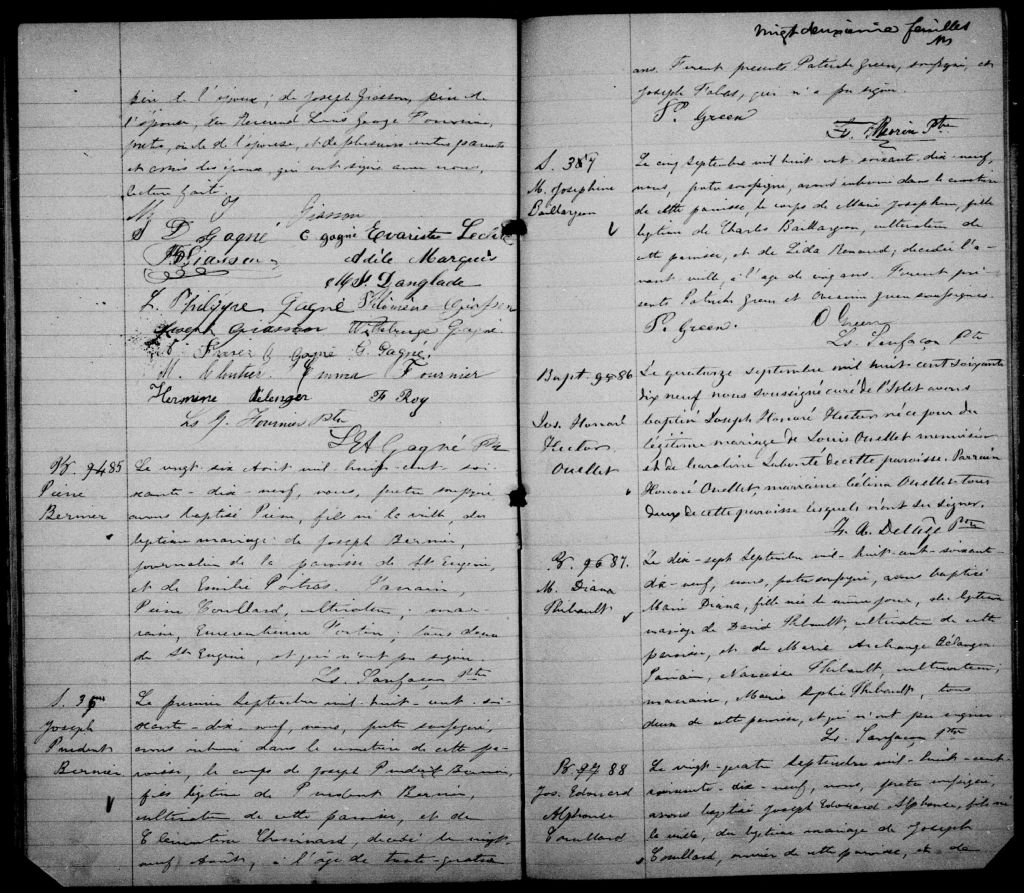 père de l'épouse; de Joseph Giasson, père de
l'épouse, du Révérend Louis George Fournier,
prêtre, oncle de l'épouse, et de plusieurs autres parents
et amis des époux, qui ont signé avec nous,
lecture faite.
Giasson
D Gagné C Gagné Evariste Lecl
Giasson Adèle Marquis
M. S. Danglade
L. Philippe Gagné Philomène Giasson
Joseph Giasson Gagné
Fraser Gagné G. Gagné.
M. Cloutier Emma Fournier
Hermine Bélenger F Roy
Ls G. Fournier Ptre
Gagné Ptr
B. 9485
Pierre
Bernier
Le vingt six Août mil huit cent soi-
xante-dix-neuf, nous, prêtre soussigné
avons baptisé Pierre, fils né la veille, du
légitime mariage de Joseph Bernier,
journalier de la paroisse de St Eugène,
et de Emélie Poitras. Parrain,
Pierre Couillard, cultivateur; mar-
raine, Emérentienne Fortin, tous deux
de St Eugène, et qui n'ont pu signer.
Ls. Sanfaçon Ptre
S. 36
Joseph
Prudent
Bernier
Le premier Septembre mil-huit-cent-soi-
xante-dix-neuf, nous, prêtre soussigné,
avons inhumé dans le cimetière de cette pa-
roisse, le corps de Joseph Prudent Bernier,
fils légitime de Prudent Bernier,
cultivateur de cette paroisse, et de
Clémentine Chouinard, décédé le vingt
neuf Août, à l'âge de trente-quatre
Vingt deuxième feuillet
ans. Furent présents Patrick Green, soussigné, et
Joseph, qui n'a pu signer.
P. Green
F. Morin Ptre
S. 387
M. Josephine
Baillargeon
Le cinq Septembre mil huit cent soixante-dix-neuf,
nous, prêtre soussigné, avons inhumé dans le cimetière
de cette paroisse, le corps de Marie Josephine, fille
légitime de Charles Baillargeon, cultivateur de
cette paroisse, et de Lida Renaud, décédée l'a-
vant veille, à l'âge de cinq ans. Furent pré-
sents Patrick Green et Green soussignés.
P. Green. O Green
Ls. Sanfaçon Ptre
Bapt. 9586
Jos. Honoré
Hector
Ouellet
Le quatorze septembre mil huit cent soixante
dix neuf nous soussigné curé de l'Islet avons
baptisé Joseph Honoré Hector né ce jour du
légitime mariage de Louis Ouellet menuisier
et de Caroline Laberté de cette paroisse. Parrain
Honoré Ouellet, marraine Célina Ouellet tous
deux de cette paroisse lesquels n'ont su signer.
F. A. Ptre
B. 9687.
M. Diana
Thibault
Le dix-sept Septembre mil-huit-cent-soixante-
dix-neuf, nous, prêtre soussigné, avons baptisé
Marie Diana, fille née le même jour, du légitime
mariage de David Thibault, cultivateur de cette
paroisse, et de Marie Archange Bélanger.
Parrain, Narcisse Thibault, cultivateur;
marraine, Marie Sophie Thibault, tous
deux de cette paroisse, et qui n'ont pu signer
Ls. Sanfaçon Ptre
B. 97 88
Jos. Edouard
Alphonse
Couillard
Le vingt-quatre Septembre mil-huit-cent-
soixante-dix-neuf, nous, prêtre soussigné,
avons baptisé Joseph Edouard Alphonse, fils né
la veille, du légitime mariage de Joseph
Couillard, ouvrier de cette paroisse, et de